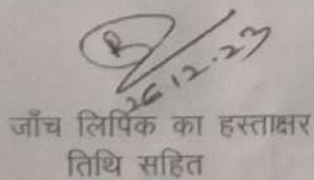 26.12.23
जाँच लिपिक का हस्ताक्षर
तिथि सहित